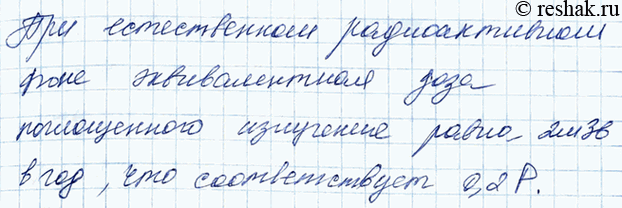 © reshak.ru
При естественном радиоактивном
фоне эквивалентная доза
поглощенного излучения равна 2мЗв
в год, что соответствует 0,2 Р.